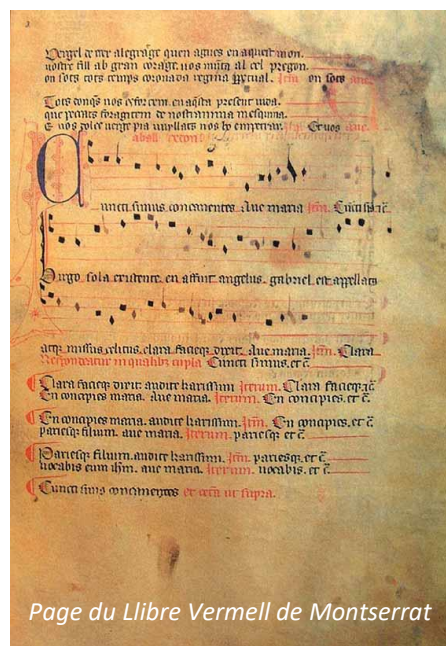 Verger de tot alegratge quen agues en aquest mon.
vostre fill ab gran coratge. nos munta al cel pregon.
on sots tots temps coronada regina ppetual. Itm on sots
Tots donqs nos esforcem. en aqsta present vida.
que peccats foragitem de nostranima mesquina.
E vos dolce verge pia vullats nos ho empetrar. Et vos
Cuncti simus concanentes. Aue maria Itm. Cuncti
Virgo sola existente. en affuit angelus. gabriel est appellatus
atqz missus celitus. clara facieqz dixit. Aue maria. Itm. Clara
Cuncti simus. et c̄
Clara facieqz dixit: audite karissimi Iterum. Clara facieqz
En concipies maria. Aue maria. Iterum. En concipies. et c̄
En concipies maria. audite karissimi. Itm. En concipies. et c̄
pariesqz filium. aue maria. Iterum. pariesqz et c̄
Pariesqz filium. audite karissimi. Itm. pariesqz. et c̄
vocabis eum ihm. aue maria. Iterum. vocabis. et c̄
Cuncti simus concanentes et cetera ut supra.
Page du Llibre Vermell de Montserrat